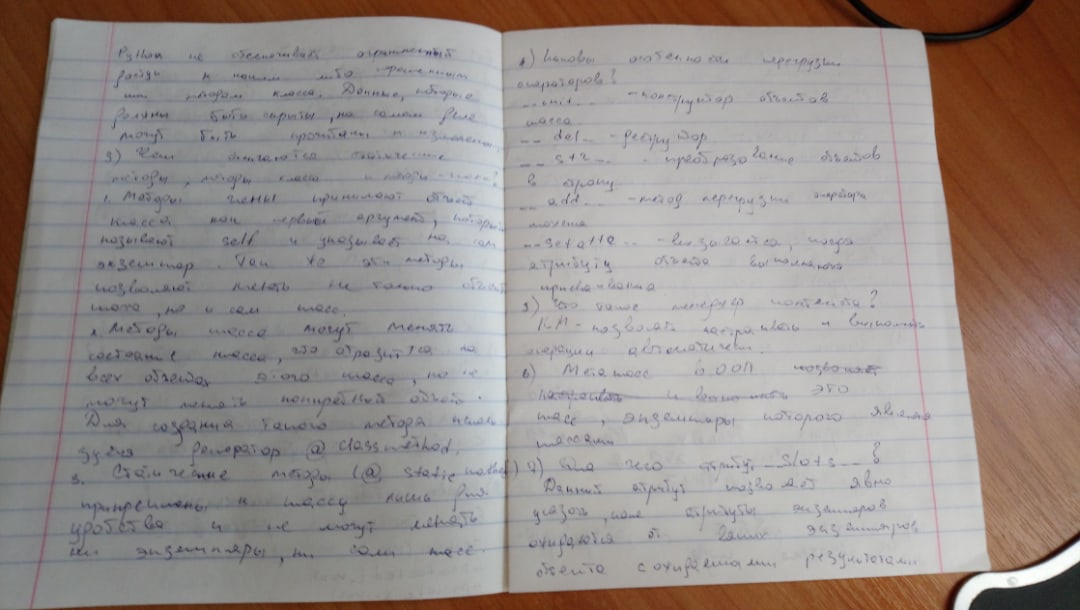 Python не обеспечивает ограниченный
доступ к каким либо переменным
или методам класса. Данные, которые
должны быть скрыты, на самом деле
могут быть прочитаны и изменены.
3) Чем отличаются статические
методы, методы класса и методы
1. Методы принимают объект
класса как первый аргумент, который
называют self и указывает на сам
экземпляр. Так же эти методы
позволяют менять не только объект
класса, но и сам класс.
2. Методы класса могут менять
состояние класса, что отразится на
всех объектах этого класса, но не
могут менять конкретный объект.
Для создания такого метода
генератор @classmethod.
3. Статические методы (@static
прикреплены к классу лишь для
удобства и не могут менять
ни экземпляры, ни сами класс.
4) Каковы особенности перегрузки
операторов?
__init__ - конструктор объектов
класса
__del__ - деструктор
__str__ - преобразование объектов
в строку
__add__ - метод перегрузки оператора
сложения
- вызывается, когда
атрибуту объекта выполняется
присваивание
5) Что такое менеджер контекста?
КМ - позволяет настраивать и выполнять
операции автоматически.
6) Метакласс в ООП позволяет
настраивать и выполнять это
класс, экземпляры которого являются
классами
7) Для чего атрибут __slots__?
Данный атрибут позволяет явно
указать, какие атрибуты экземпляров
ожидаются от ваших экземпляров
объекта с ожидаемыми результатами